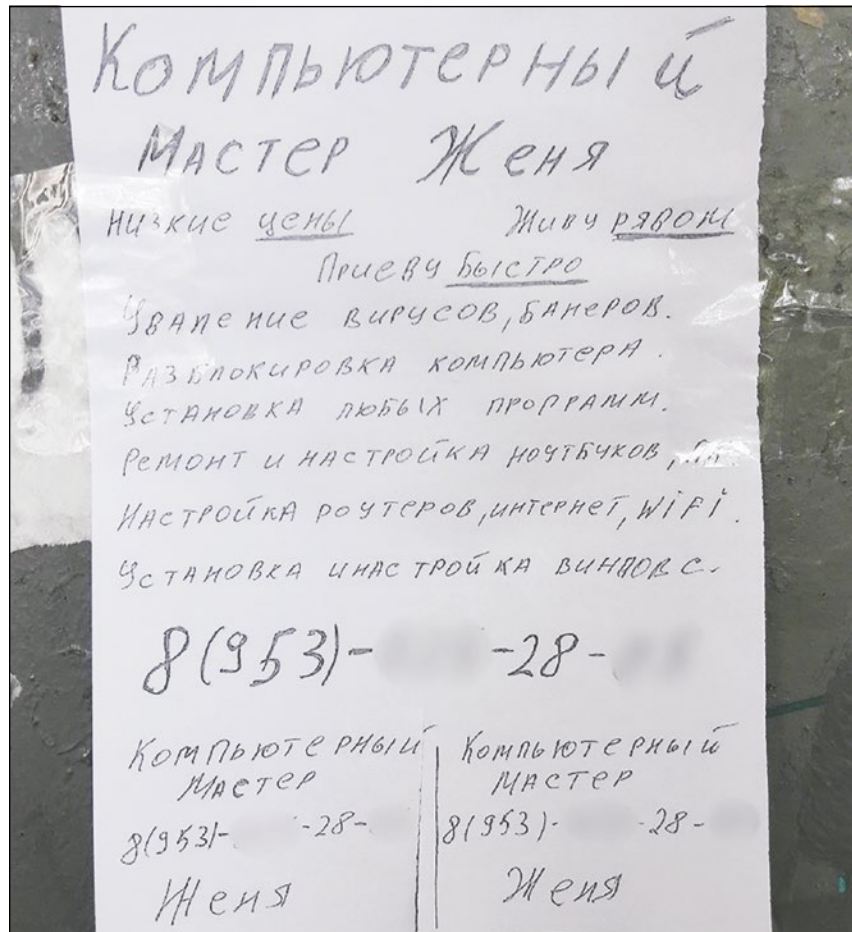 Компьютерный
Мастер Женя
Низкие цены Живу рядом
Приеду Быстро
Удаление вирусов, банеров.
Разблокировка компьютера.
Установка любых программ.
Ремонт и настройка ноутбуков,
Настройка роутеров, интернет, WiFi.
Установка инастройка виндовс.
8(953)- -28-
Компьютерный Компьютерный
Мастер Мастер
8(953)- -28- 8(953)- -28-
Женя Женя